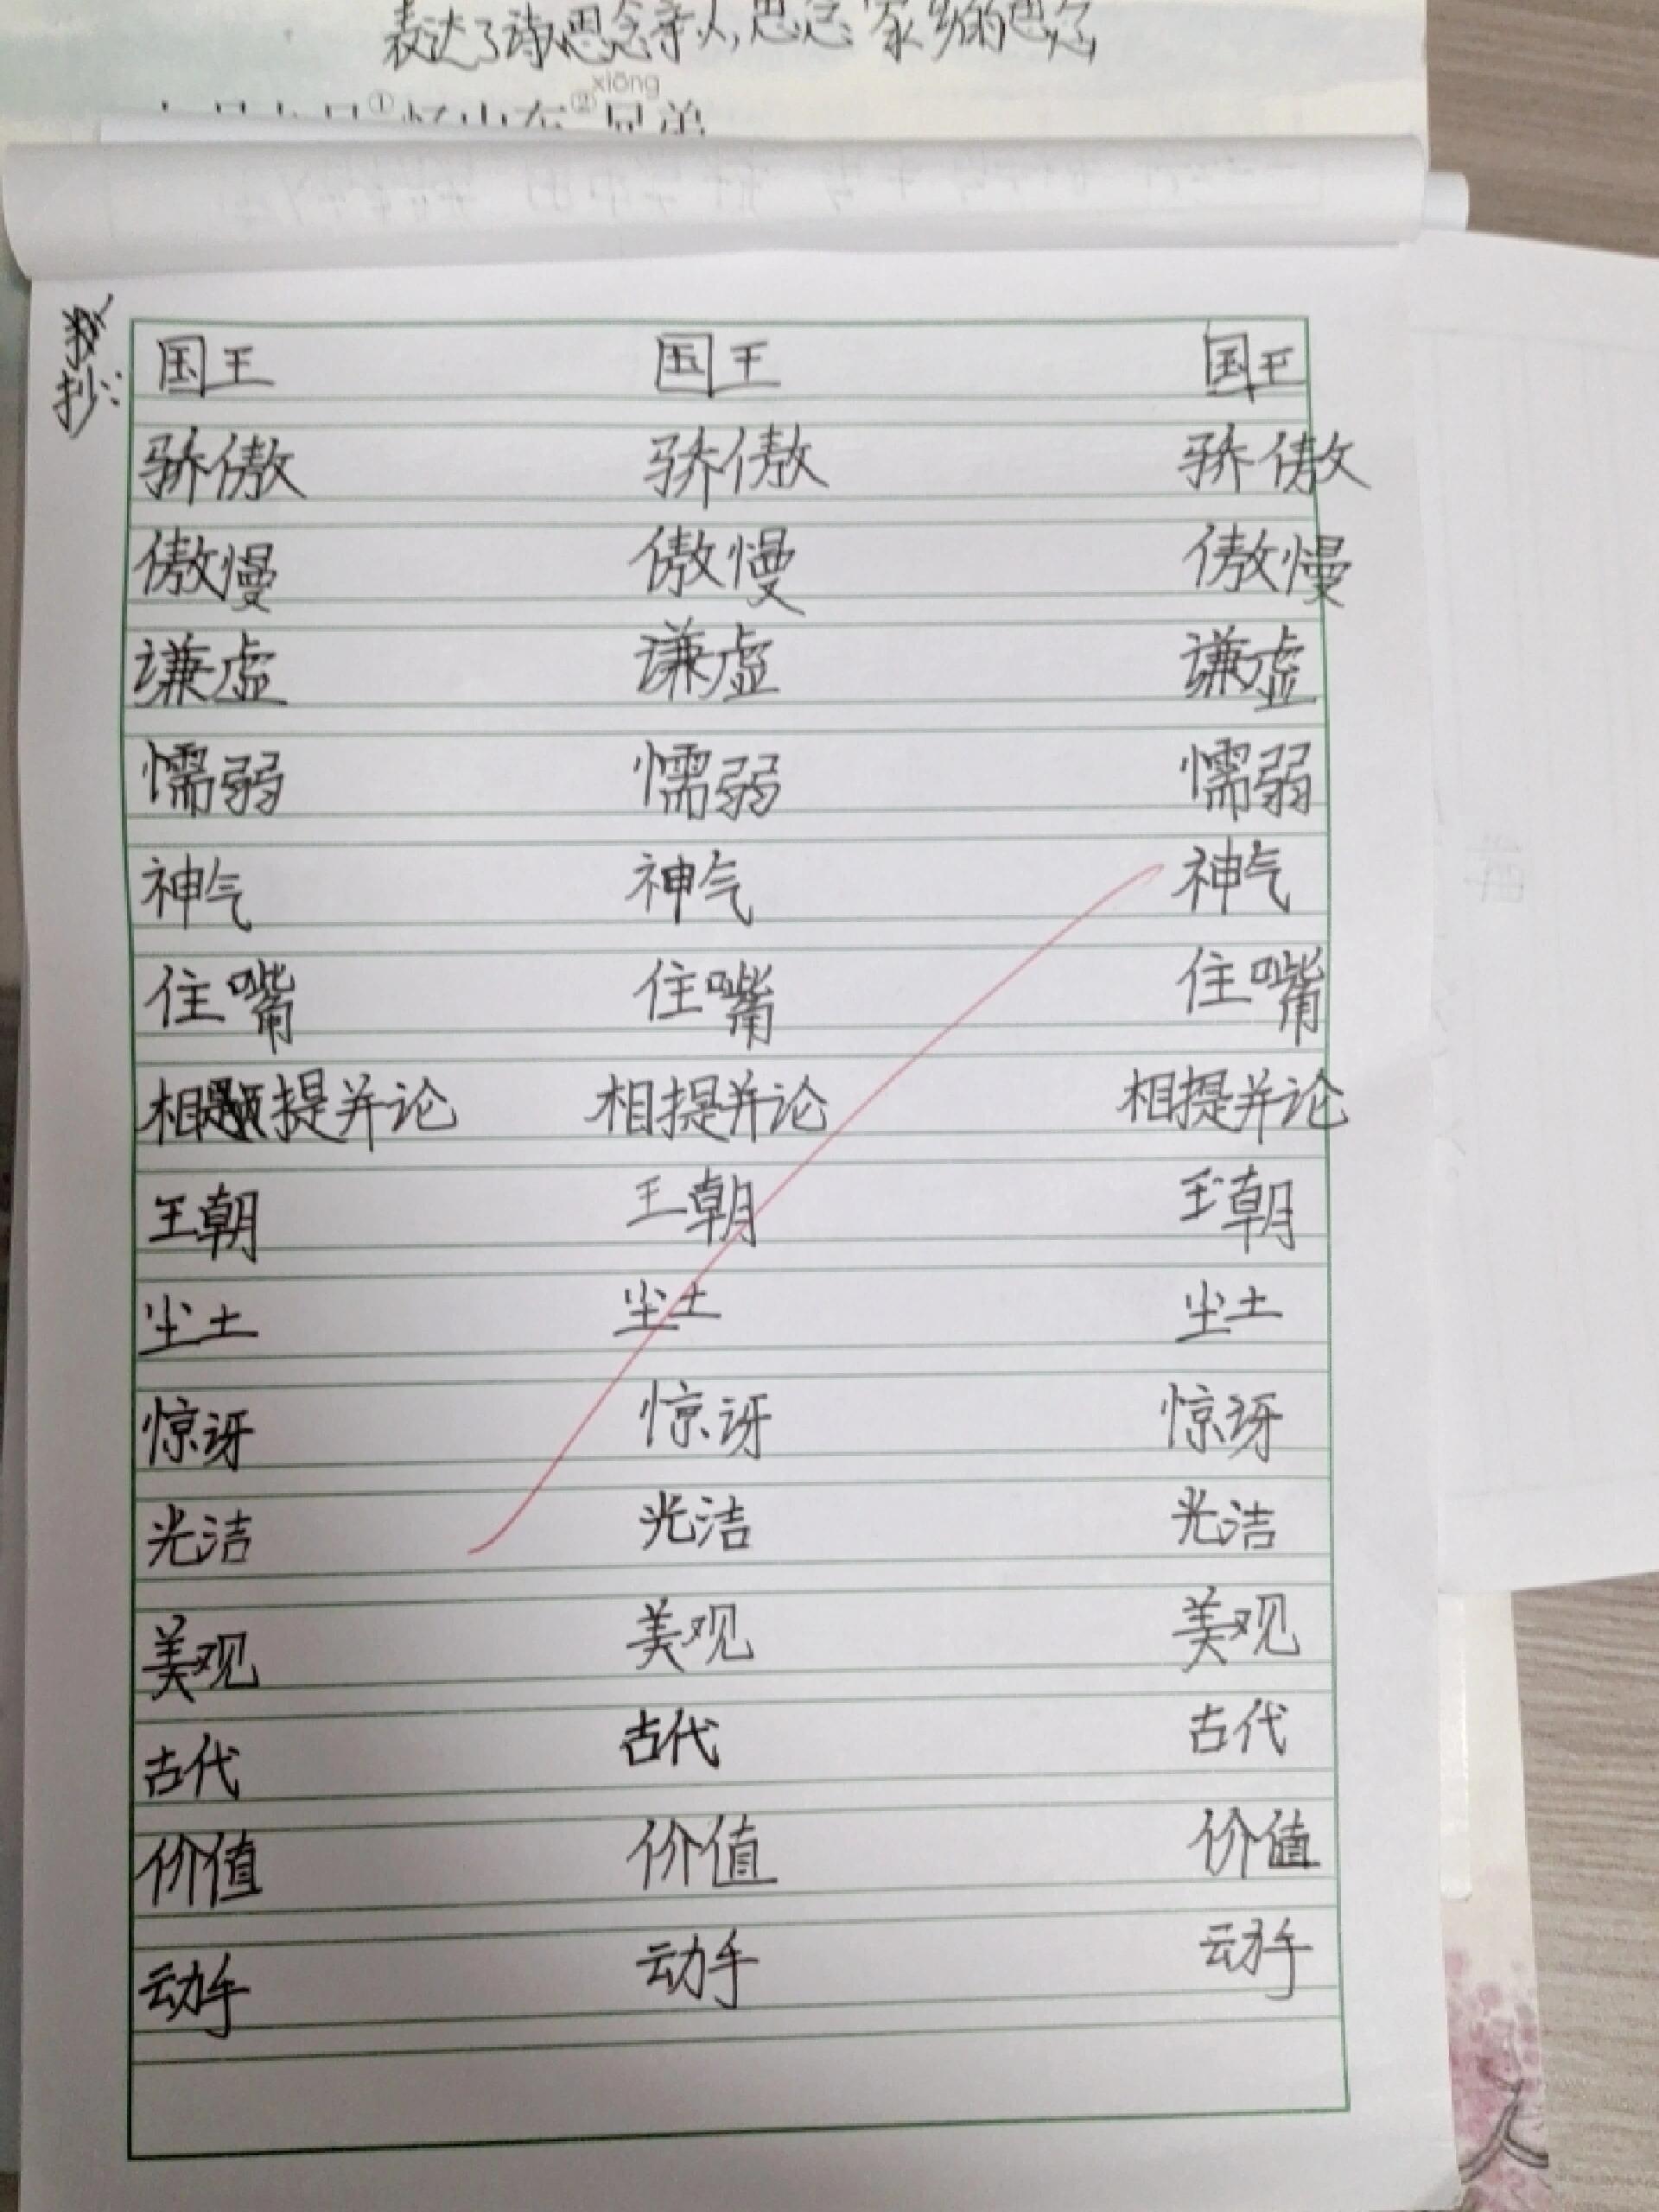 表达了诗人思念亲人,思念家乡的思念
xiōng
①忆山东②兄弟
抄:
国王 国王 国王
骄傲 骄傲 骄傲
傲慢 傲慢 傲慢
谦虚 谦虚 谦虚
懦弱 懦弱 懦弱
神气 神气 神气
住嘴 住嘴 住嘴
相提并论 相提并论 相提并论
王朝 王朝 王朝
尘土 尘土 尘土
惊讶 惊讶 惊讶
光洁 光洁 光洁
美观 美观 美观
古代 古代 古代
价值 价值 价值
动手 动手 动手